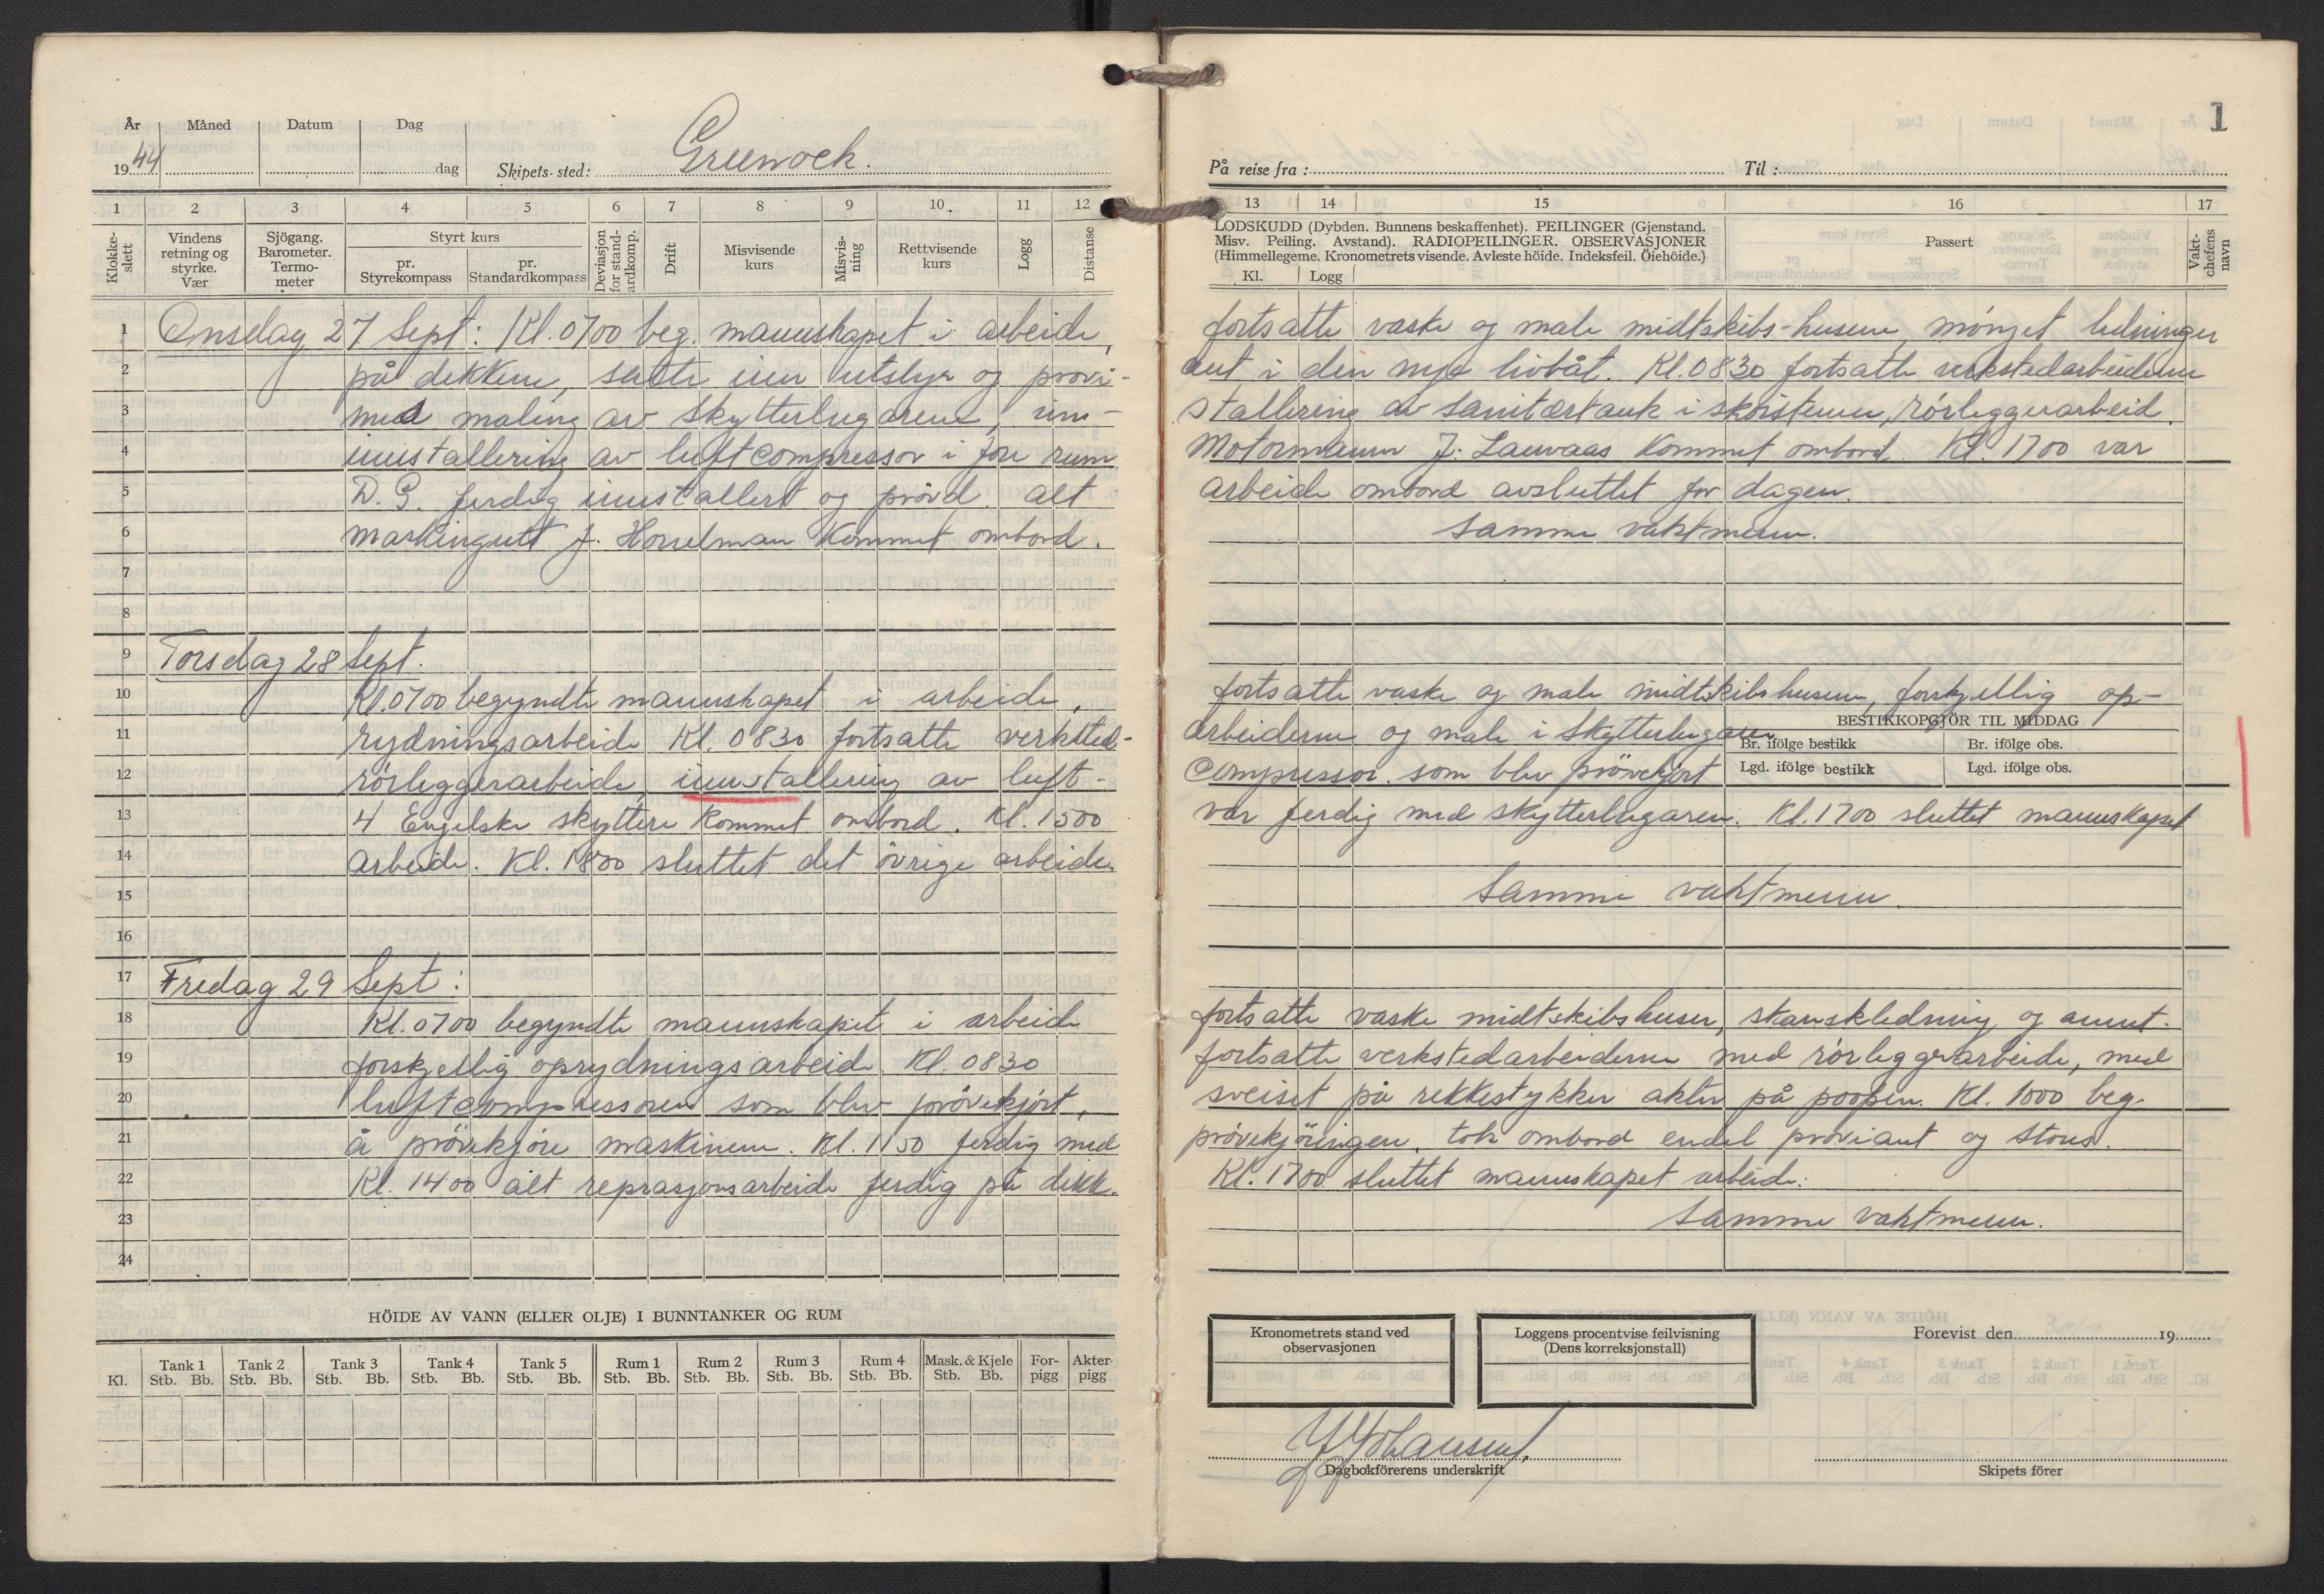 År Måned Datum Dag
1944 dag Skipets sted: Greenock.
1 2 3 4 5 6 7 8 9 10 11 12
Klokkeslett
Vindens retning og styrke. Vær
Sjögang. Barometer. Termometer
Styrt kurs
pr. Styrekompass
pr. Standardkompass
Deviasjon for standardkomp.
Drift
Misvisende kurs
Misvisning
Rettvisende kurs
Logg
Distanse
1 Onsdag 27 Sept: Kl. 0700 beg. mannskapet i arbeide,
2 på dekkene, satte inn utstyr og provi-
3 med maling av skytterlugarene, inn-
4 innstallering av luftcompressor i fore rum
5 D. G. ferdig innstallert og prövd. alt
6 maskingutt J. Horselman Kommet ombord.
7
8
9 Torsdag 28 Sept.
10 Kl. 0700 begyndte mannskapet i arbeide,
11 rydningsarbeide Kl. 0830 fortsatte verksted-
12 rörleggerarbeide, innstallering av luft-
13 4 Engelske skyttere Kommet ombord. Kl. 1500
14 arbeide. Kl. 1800 sluttet det övrige arbeide.
15
16
17 Fredag 29 Sept:
18 Kl. 0700 begyndte mannskapet i arbeide
19 forskjellig oprydningsarbeide. Kl. 0830
20 luftcompressoren som blev prövekjört,
21 å prövekjöre maskinene. Kl. 1150 ferdig med
22 Kl. 1400 alt reprasjonsarbeide ferdig på dekk.
23
24
HÖIDE AV VANN (ELLER OLJE) I BUNNTANKER OG RUM
Tank 1 Tank 2 Tank 3 Tank 4 Tank 5 Rum 1 Rum 2 Rum 3 Rum 4 Mask. & Kjele For-pigg Akter-pigg
Kl. Stb. Bb. Stb. Bb. Stb. Bb. Stb. Bb. Stb. Bb. Stb. Bb. Stb. Bb. Stb. Bb. Stb. Bb. Stb. Bb.
1
På reise fra: Til:
13 14 15 16 17
LODSKUDD (Dybden. Bunnens beskaffenhet). PEILINGER (Gjenstand.
Misv. Peiling. Avstand). RADIOPEILINGER. OBSERVASJONER
(Himmellegeme. Kronometrets visende. Avleste höide. Indeksfeil. Öiehöide.)
Kl. Logg
Passert
Vaktchefens navn
fortsatte vaske og male midtskibs-husene, mönjet ledninger
ant i den nye livbåt. Kl. 0830 fortsatte verkstedarbeiderne
stallering av sanitærtank i skorstenen, rörleggerarbeid.
Motormann J. Lauvaas Kommet ombord. Kl. 1700 var
arbeide ombord avsluttet for dagen.
Samme vaktmenn.
fortsatte vaske og male midtskibshusene, forskjellig op-
BESTIKKOPGJÖR TIL MIDDAG
arbeiderne og male i skytterlugaren
Br. ifölge bestikk Br. ifölge obs.
Compressor. som blev prövekjört
Lgd. ifölge bestikk Lgd. ifölge obs.
var ferdig med skytterlugaren. Kl. 1700 sluttet mannskapet
Samme vaktmenn.
fortsatte vaske midtskibshuser, skanskledning og annet.
fortsatte verkstedarbeiderne med rörleggerarbeide, med
sveiset på rekkestykker akter på poopen. Kl. 1000 beg.
prövekjöringen, tok ombord endel proviant og stores.
Kl. 1700 sluttet mannskapet arbeide.
Samme vaktmenn.
Kronometrets stand ved observasjonen
Loggens procentvise feilvisning (Dens korreksjonstall)
Forevist den 19
Johansen
Dagbokförerens underskrift
Skipets förer